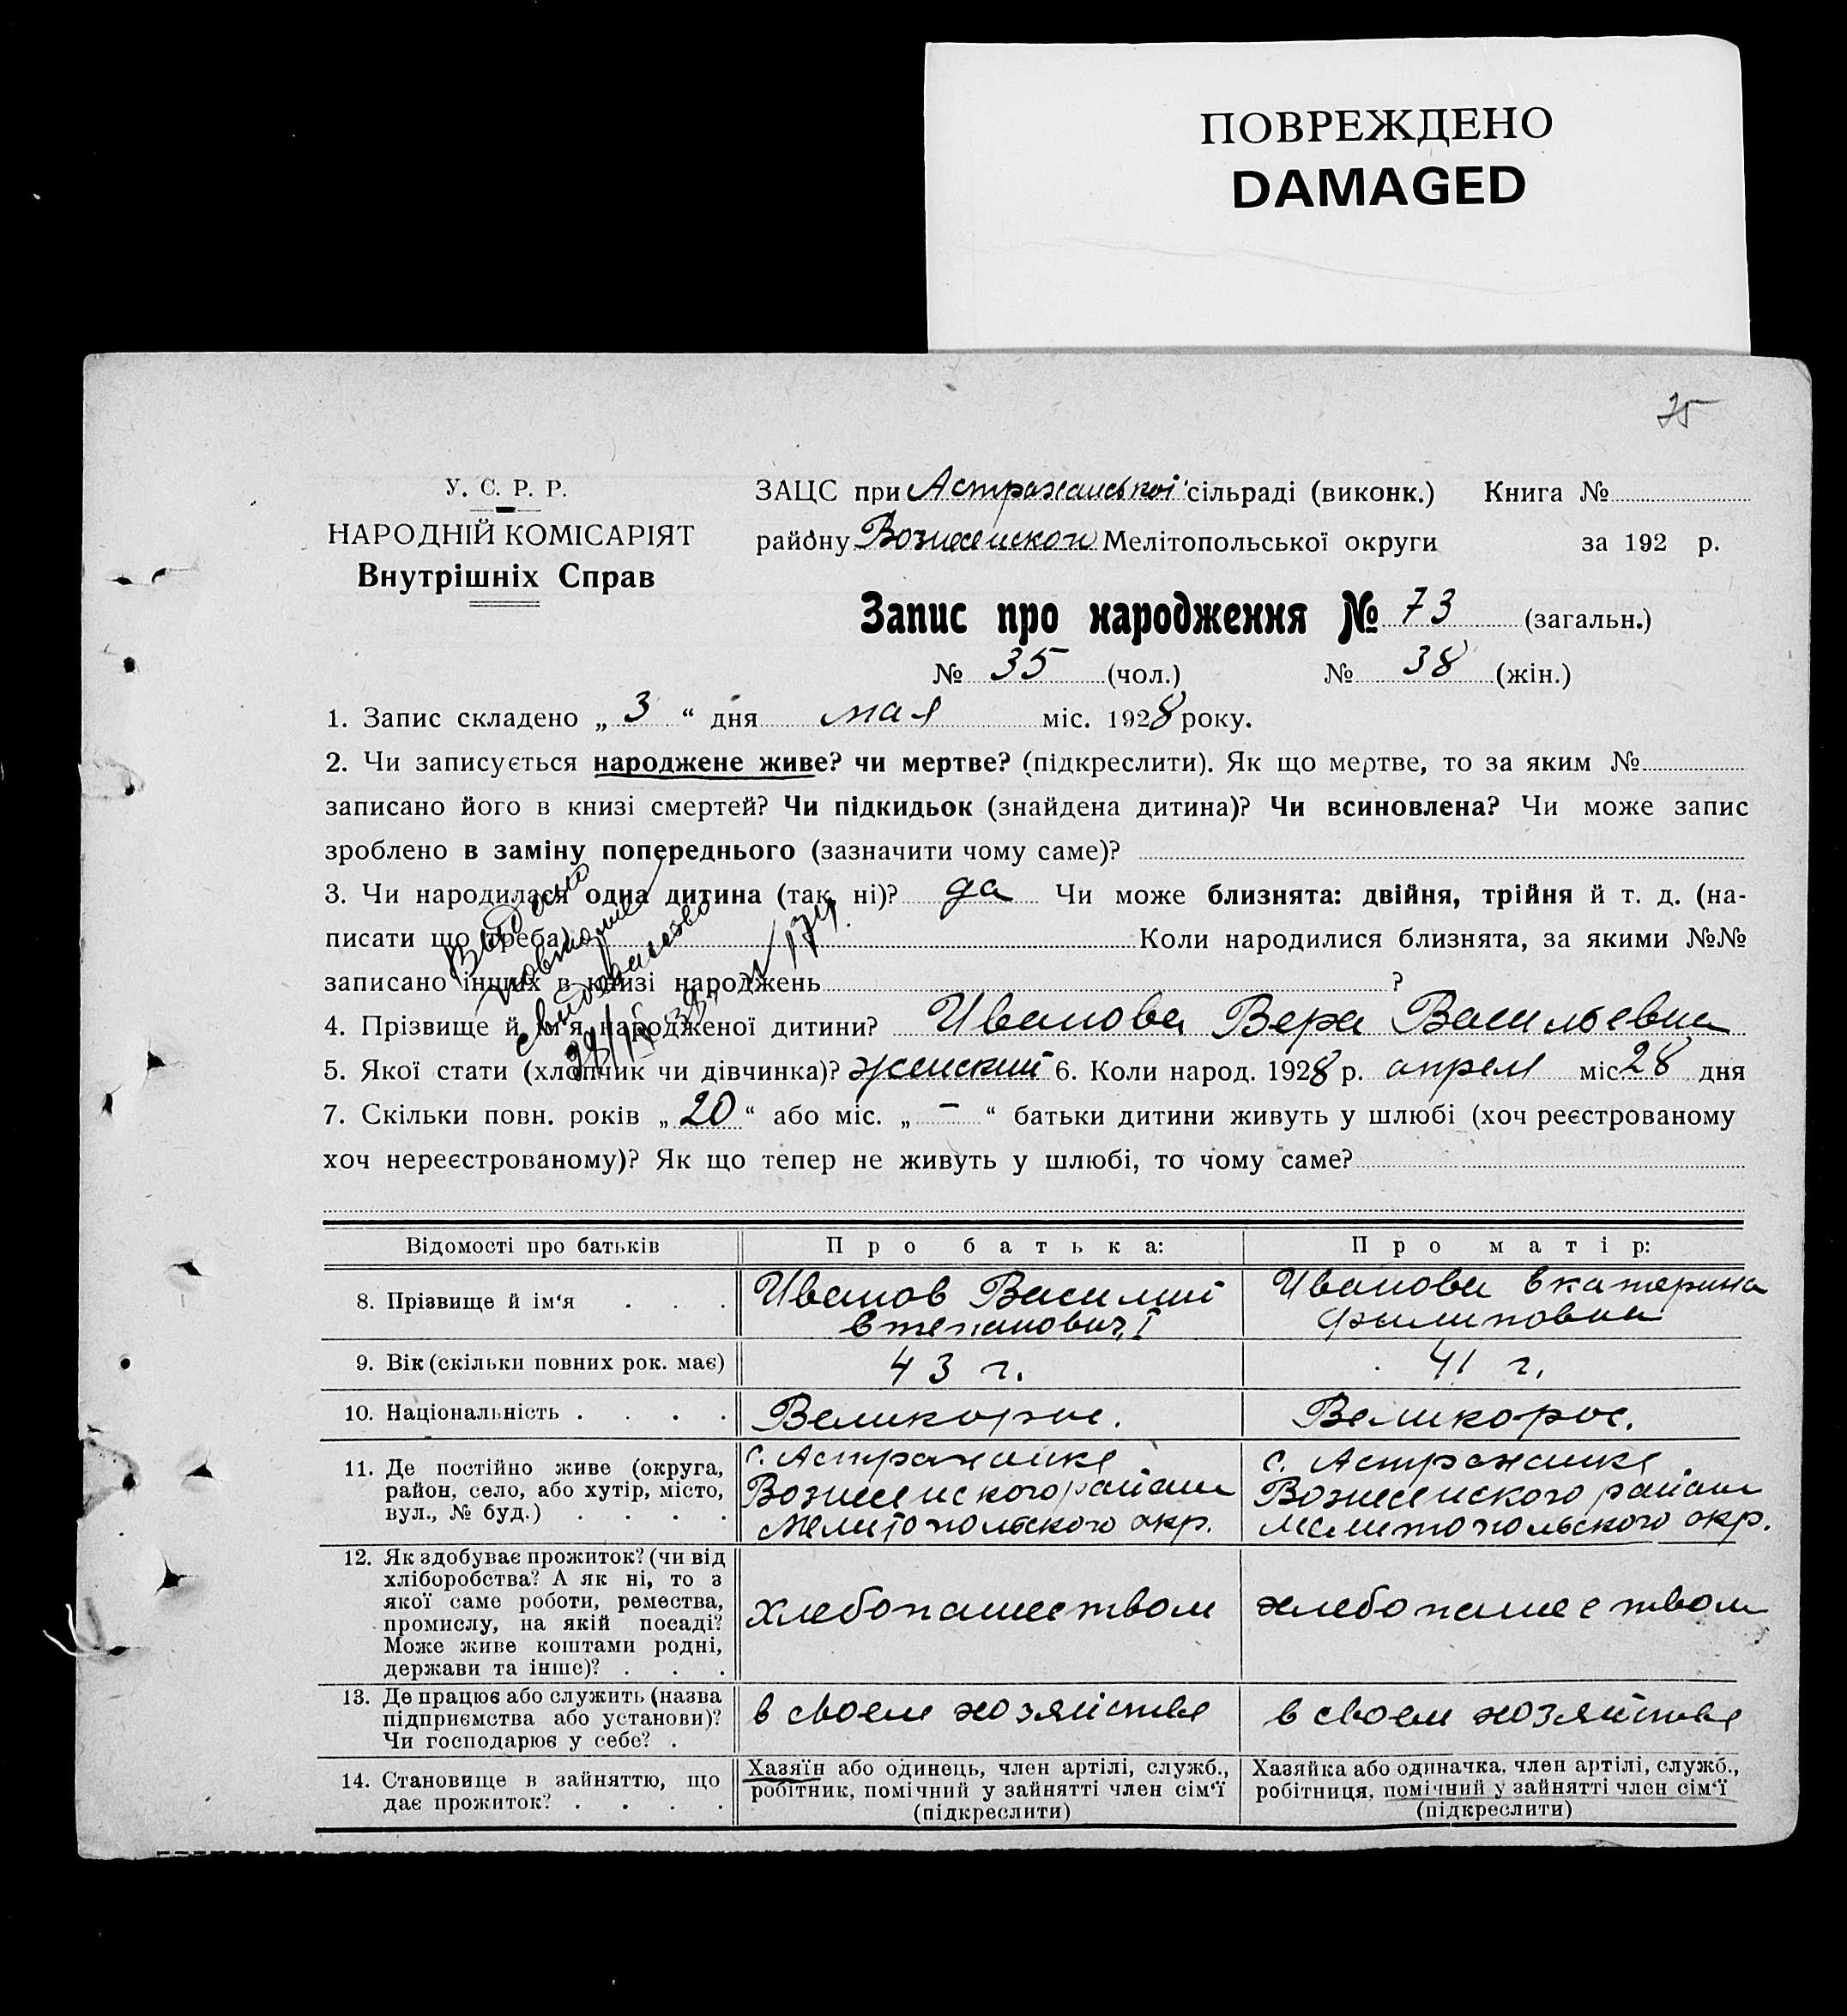 ПОВРЕЖДЕНО
DAMAGED
75
У. С. Р. Р.
НАРОДНІЙ КОМІСАРІЯТ
Внутрішніх Справ
ЗАЦС при Астраханської сільраді (виконк.) Книга №
району Вознесенского Мелітопольської округи за 192 р.
Запис про народження № 73 (загальн.)
№ 35 (чол.) № 38 (жін.)
1. Запис складено „ 3 “ дня мая міс. 1928 року.
2. Чи записується народжене живе? чи мертве? (підкреслити). Як що мертве, то за яким №
записано його в книзі смертей? Чи підкидьок (знайдена дитина)? Чи всиновлена? Чи може запис
зроблено в заміну попереднього (зазначити чому саме)?
3. Чи народилася одна дитина (так, ні)? да Чи може близнята: двійня, трійня й т. д. (на-
писати що треба) Коли народилися близнята, за якими №№
записано інших в книзі народжень ?
Видано
повторне
свидоцтво
4. Прізвище й ім‘я народженої дитини? Иванова Вера Васильевна
5. Якої стати (хлопчик чи дівчинка)? женский 6. Коли народ. 1928 р. апреля міс. 28 дня
7. Скільки повн. років „ 20 “ або міс. „ – “ батьки дитини живуть у шлюбі (хоч реєстрованому
хоч нереєстрованому)? Як що тепер не живуть у шлюбі, то чому саме?
Відомості про батьків Про батька: Про матір:
8. Прізвище й ім‘я . . . Иванов Василий Иванова Екатерина
Степанович I Филиповна
9. Вік (скільки повних рок. має) 43 г. 41 г.
10. Національність . . . . Великорос. Великорос.
11. Де постійно живе (округа, с. Астраханке с. Астраханке
район, село, або хутір, місто, Вознесенского района Вознесенского района
вул., № буд.) . . . . Мелитопольского окр. Мелитопольского окр.
12. Як здобуває прожиток? (чи від
хліборобства? А як ні, то з
якої саме роботи, ремества, хлебопашеством хлебопашеством
промислу, на якій посаді?
Може живе коштами родні,
держави та інше)? . . .
13. Де працює або служить (назва в своем хозяйстве в своем хозяйстве
підприємства або установи)?
Чи господарює у себе? .
14. Становище в зайняттю, що Хазяїн або одинець, член артілі, служб., Хазяйка або одиначка, член артілі, служб.,
дає прожиток? . . . . робітник, помічний у зайнятті член сім‘ї робітниця, помічний у зайнятті член сім‘ї
(підкреслити) (підкреслити)